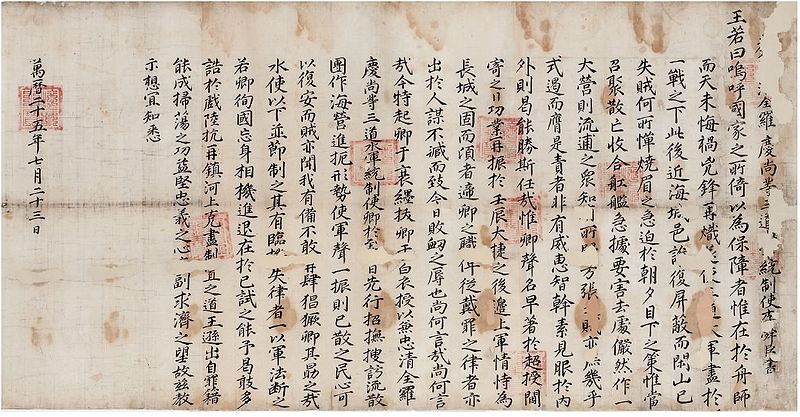 全羅慶尙等三道 統制使李舜臣書
王若曰嗚呼國家之所倚以爲保障者惟在於舟師
而天未悔禍兇鋒再熾 三道 軍盡於
一戰之下此後近海城邑誰復屛蔽而閑山已
失賊何所憚燒眉之急迫於朝夕目下之策惟當
召聚散亡收合舡艦急據要害去處儼然作一
大營則流逋之衆知 所 方張 賊亦庶幾乎
式遏而膺是責者非有威惠智幹素見服於內
外則曷能勝斯任哉惟卿聲名早著於超授閫
寄之日功業再振於壬辰大捷之後邊上軍情恃爲
長城之固而頃者遞卿之職俾從戴罪之律者亦
出於人謀不臧而致今日敗衄之辱也尙何言哉尙何言
哉今特起卿于衰絰拔卿乎白衣授以兼忠淸全羅
慶尙等三道水軍統制使卿於至日先行招撫搜訪流散
團作海營進扼形勢使軍聲一振則已散之民心可
以復安而賊亦聞我有備不敢再肆猖獗卿其勗之哉
水使以下並節制之其有臨機失律者一以軍法斷之
若卿徇國忘身相機進退在於已試之能予曷敢多
誥於戲陸抗再鎭河上克盡制置之道王遜出自罪籍
能成掃蕩之功益堅忠義之心 副求濟之望故玆敎
示想宜知悉
萬曆二十五年七月二十三日